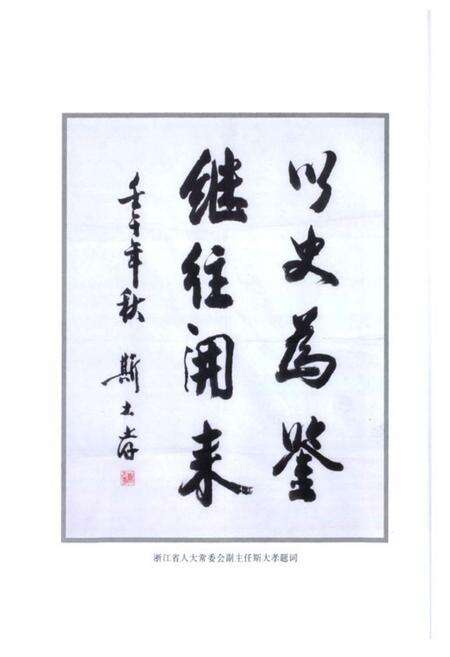 以史为鉴
继往開来
壬午年秋 斯大孝
浙江省人大常委会副主任斯大孝题词